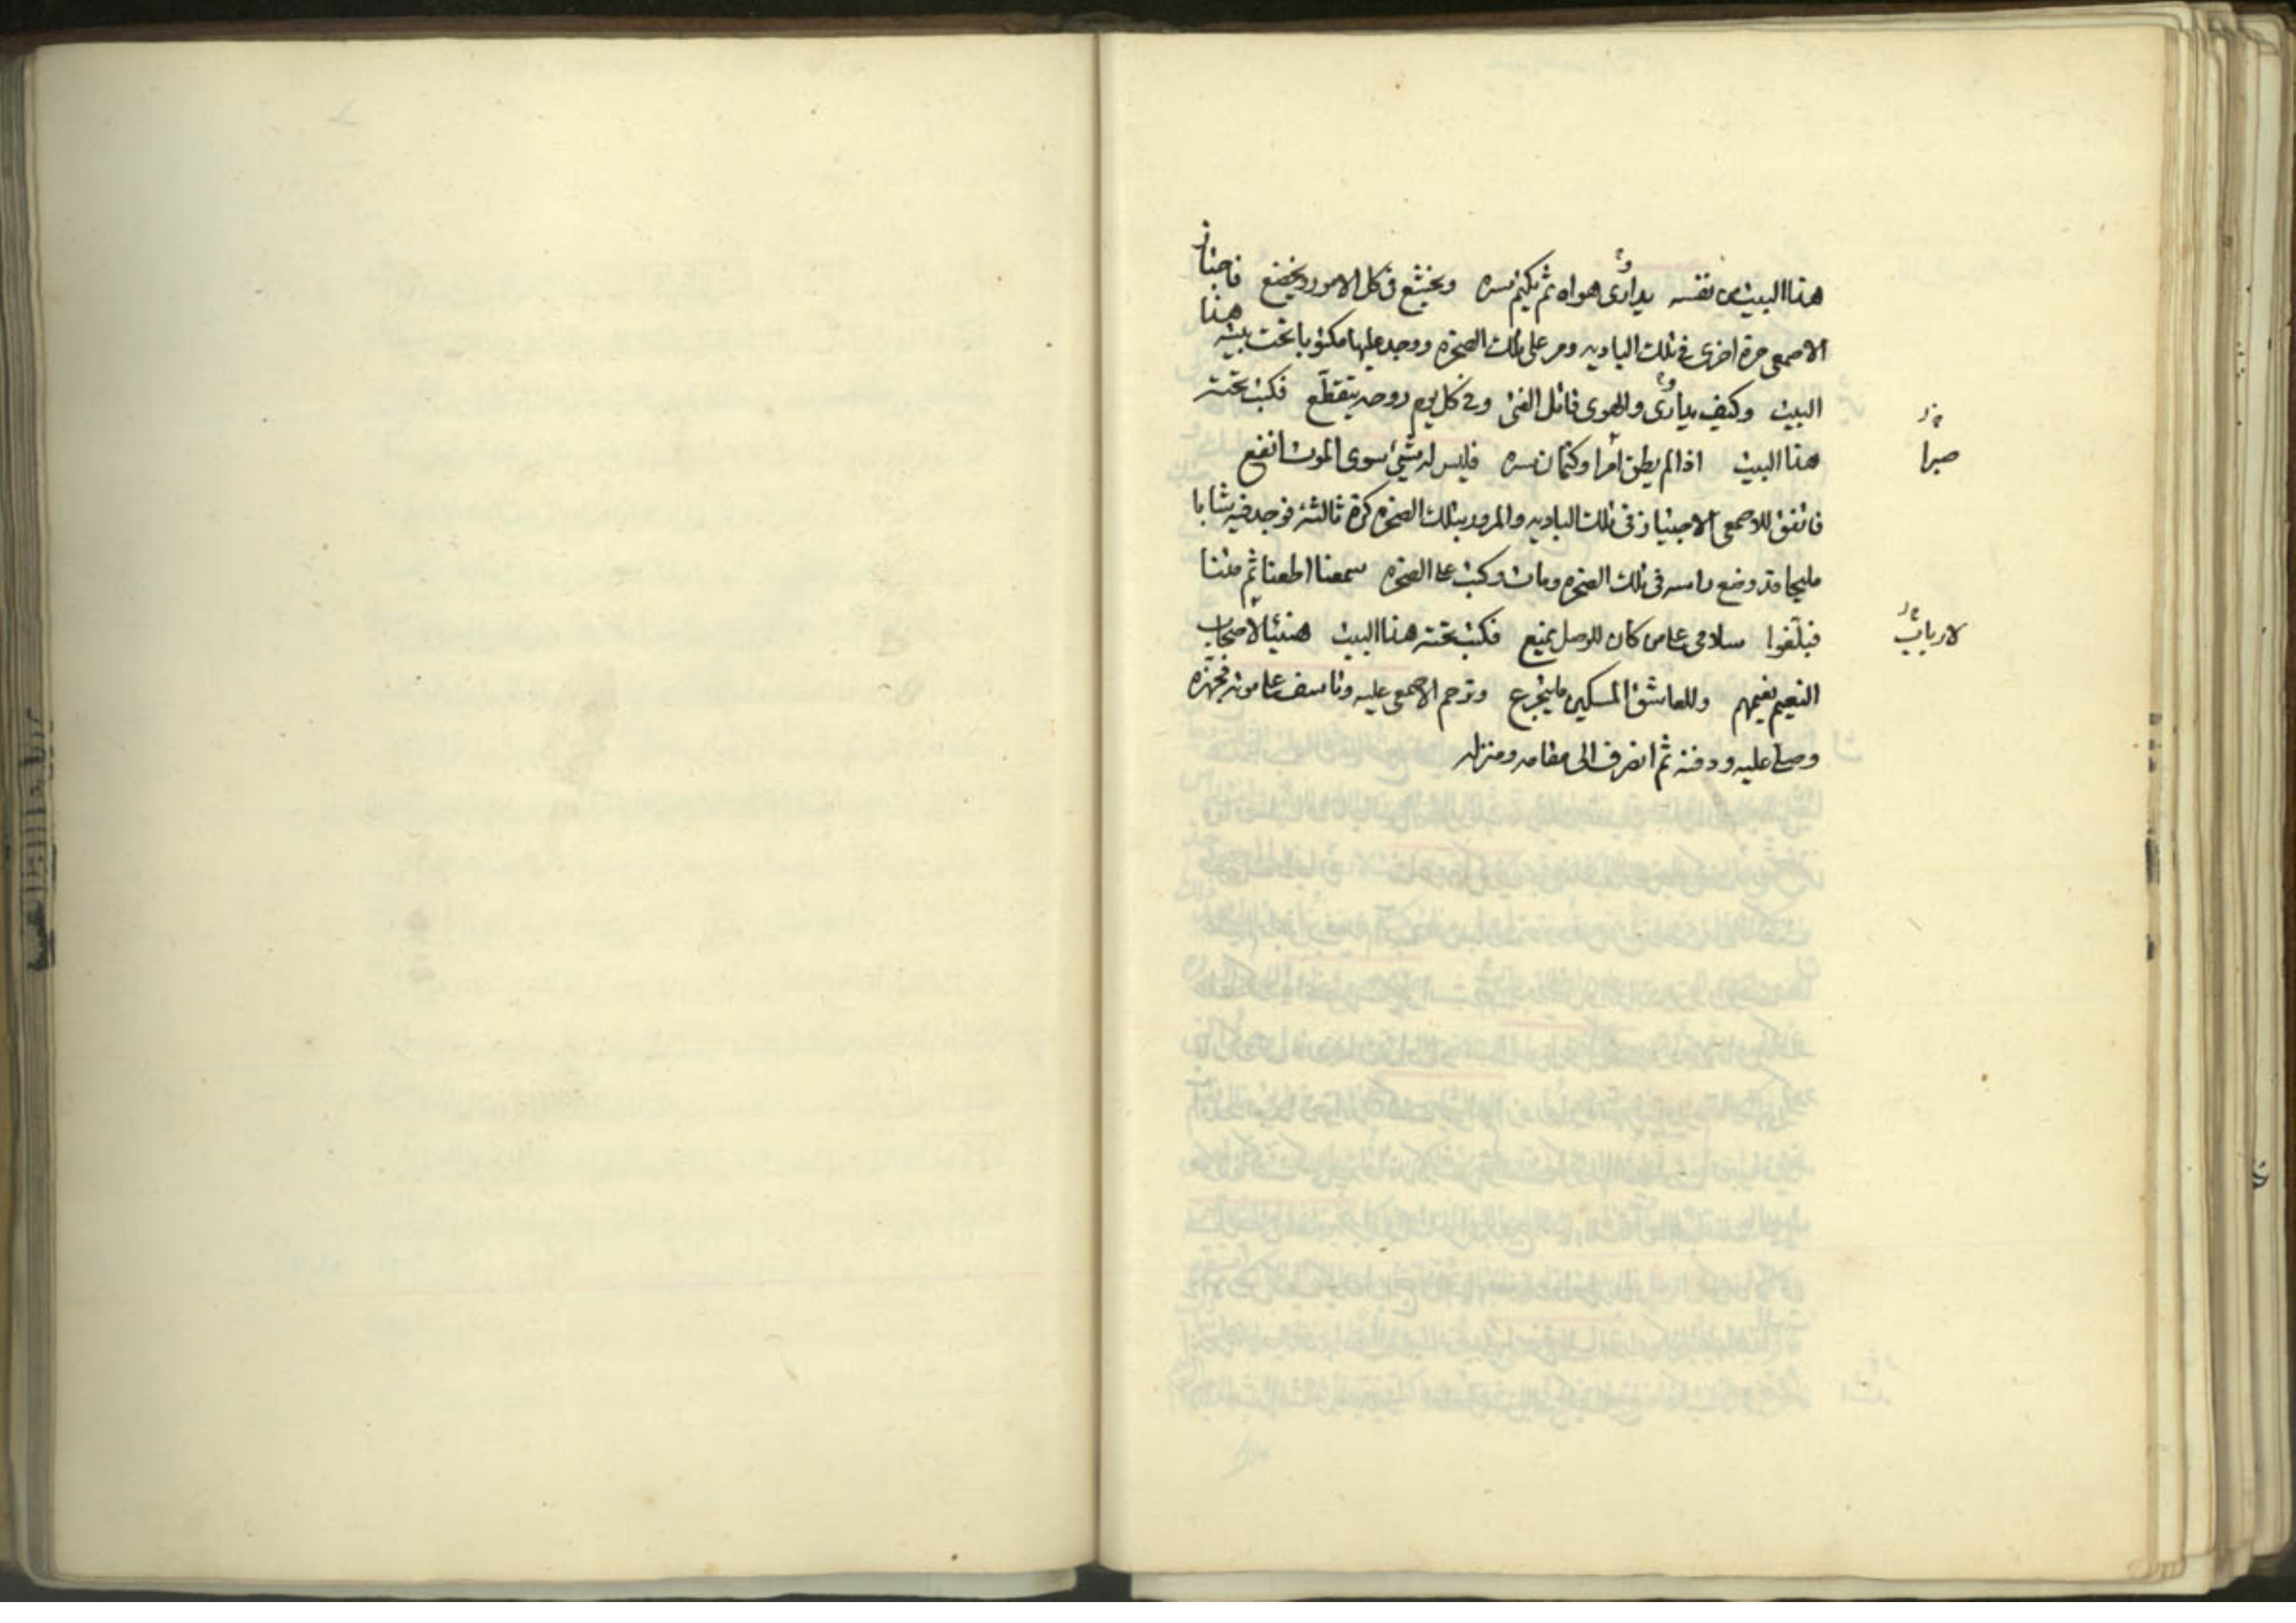 هذا البيت من نفسه يداوى هواه ثم يكتم سره ويخشع فى كل الامور ويخضع فاجتاز
الاصمعى مرة اخرى فى تلك الباديه ومر على تلك الصخره ووجد عليها مكتوبا تحت بيته هذا
البيت وكيف يداوى والهوى قاتل الفتى وفى كل يوم روحه يتقطّع فكتب تحته
هذا البيت اذا لم يطق امرا وكتمان سره فليس له شيئ سوى الموت انفع
صبرا
فاتفق للاصمعى الاجتياز فى تلك الباديه والمرور بتلك الصخره كرة ثالثه فوجد فيه شابا
مليحا قد وضع راسه فى تلك الصخره ومات وكتب على الصخره سمعنا اطعنا ثم متنا
فبلّغوا سلامى على من كان للوصل يمنع فكتب تحته هذا البيت هنيئا لاصحاب
لارباب
النعيم نعيمهم وللعاشق المسكين ما يتجرع وترحم الاصمعى عليه وتاسف على موته فجهّزه
وصلى عليه ودفنه ثم انصرف الى مقامه ومنزله